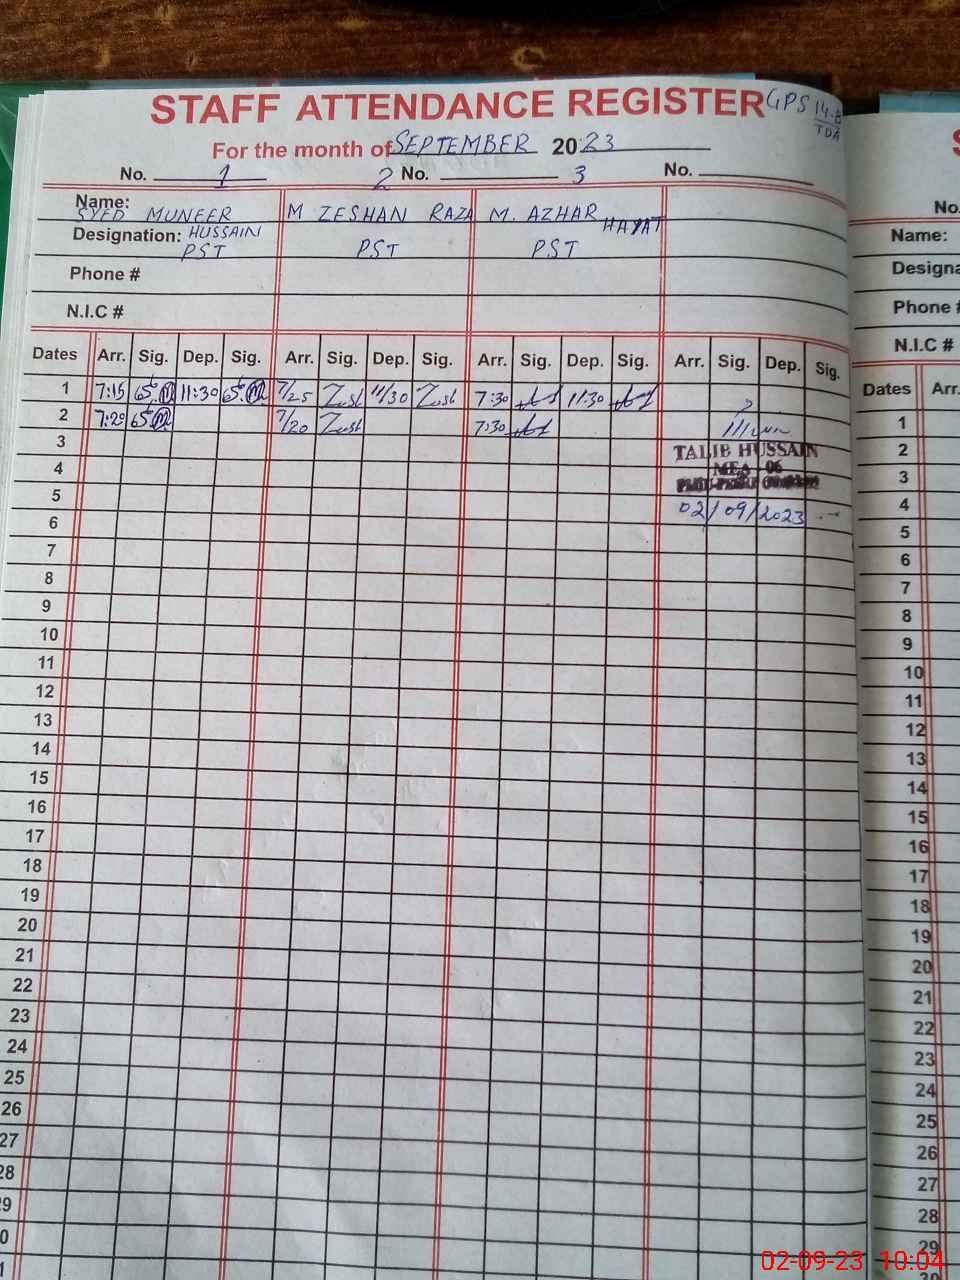 STAFF ATTENDANCE REGISTER GPS 14-B
TDA
For the month of SEPTEMBER 2023
No. 1 2 No. 3 No.
Name:
SYED MUNEER M ZESHAN RAZA M. AZHAR HAYAT
Designation: HUSSAIN
PST PST PST
Phone #
N.I.C #
Dates Arr. Sig. Dep. Sig. Arr. Sig. Dep. Sig. Arr. Sig. Dep. Sig. Arr. Sig. Dep. Sig.
1 7:15 11:30 7/25 11/30 7:30 11:30
2 7:20 7/20 7:30
3 TALIB HUSSAIN
4 MEA 06
5 02/09/2023
6
7
8
9
10
11
12
13
14
15
16
17
18
19
20
21
22
23
24
25
26
27
28
29
No.
Name:
Designa
Phone #
N.I.C #
Dates Arr.
1
2
3
4
5
6
7
8
9
10
11
12
13
14
15
16
17
18
19
20
21
22
23
24
25
26
27
28
29
02-09-23 10:04